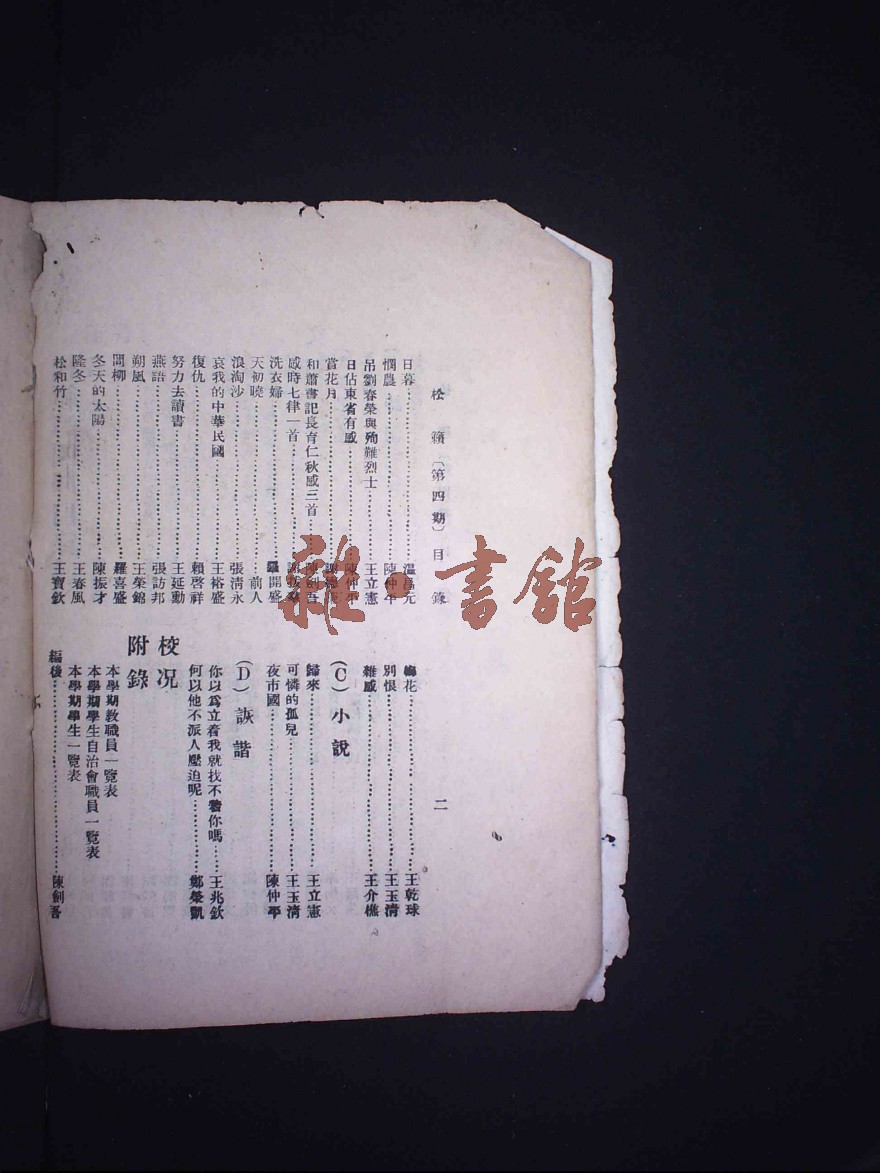 松籟〔第四期〕目錄
二
日暮……溫昌元
憫農……陳仲平
吊劉春榮與殉難烈士……王立憲
日佔東省有感……陳仲平
賞花月……謝
和蕭書記長育仁秋感三首……陳劍吾
感時七律一首……謝
洗衣婦……羅開盛
天初曉……前人
浪淘沙……張清永
哀我的中華民國……王裕盛
復仇……賴啓祥
努力去讀書……王延動
燕語……張訪邦
朔風……王榮錦
問柳……羅喜盛
冬天的太陽……陳振才
隆冬……王春風
松和竹……王寶欽
梅花……王乾球
別恨……王玉清
雜感……王介樵
(C)小說
歸來……王立憲
可憐的孤兒……王玉清
夜市國……陳仲平
(D)詼諧
你以爲立着我就找不著你嗎……王兆欽
何以他不派人壓迫呢……鄭榮凱
校况
附錄
本學期教職員一覽表
本學期學生自治會職員一覽表
本學期學生一覽表
編後……陳劍吾
雜·書舘